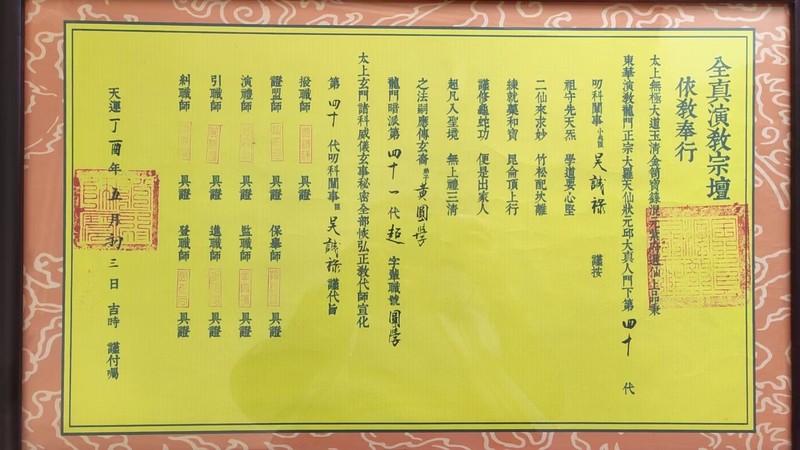 全真演教宗壇
依教奉行
太上無極大道玉清金笥寶籙混元紫府選仙上品秉
東華演教龍門正宗大羅天仙狀元邱大真人門下第四十代
叨科闡事小兆臣吳誠祿 謹按
祖守先天炁 學道要心堅
二仙來求妙 竹松配坎離
練就藥和寶 昆侖頂上行
謹修龜蛇功 便是出家人
超凡入聖境 無上禮三清
之法嗣應傳玄裔弟子黃圓學
龍門暗派第四十一代超字輩職號圓學
太上玄門諸科威儀玄事秘密全部恢弘正教代師宣化
第四十代叨科闡事臣吳誠祿謹代旨
授職師 具證
證盟師 具證 保舉師 具證
演禮師 具證 監職師 具證
引職師 具證 進職師 具證
糾職師 具證 登職師 具證
天運丁酉年五月初三日吉時 謹付囑